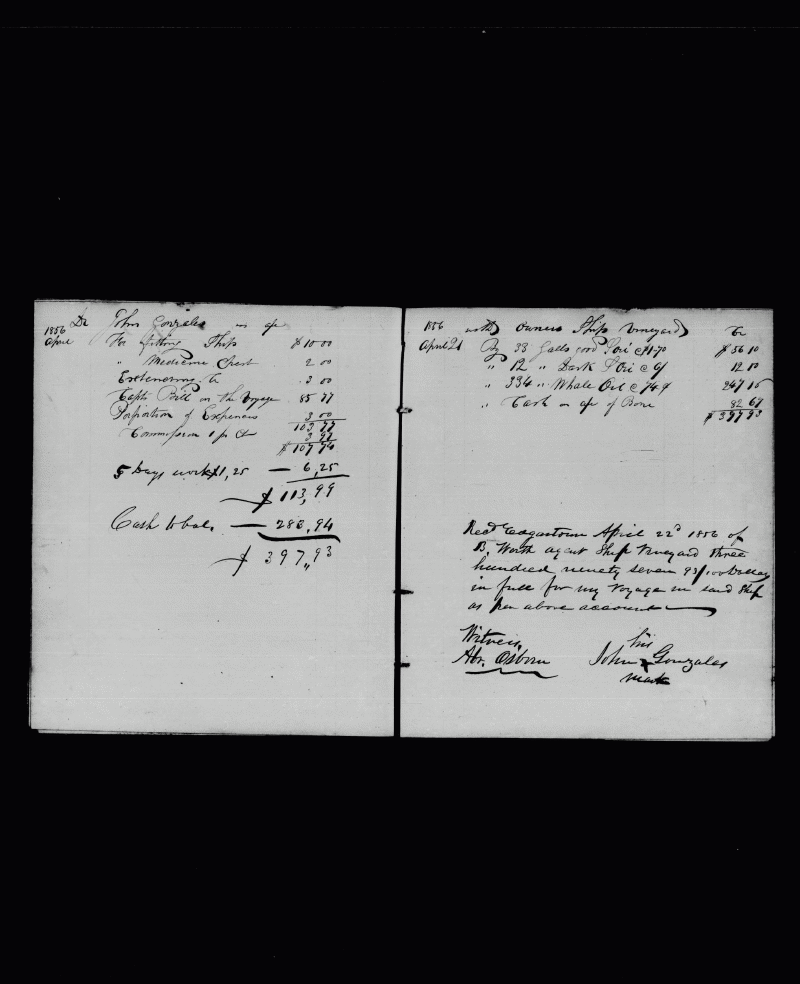 Dr John Gonzales in a/c
1856
April For fitting Ship $10 00
" Medicine Chest 2 00
3 00
Capts Bill on the Voyage 85 77
Proportion of Expences 3 00
103 77
Commission pr Ct 3 97
$ 107 74
5 Days work $1,25 — 6,25
$ 113,99
Cash to bal. — 283,94
$ 397,93
1856 with Owners Ship Vineyard Cr
April 21 By 33 Galls good S Oil @ 1 70 $ 56 10
" 12 " Dark S Oil @ 12 00
" 334 " Whale Oil @ 74 ¢ 247 16
" Cash on a/c of Bone 82 67
$ 397 93
Recd Edgartown April 22d 1856 of
B. Worth agent Ship Vineyard three
hundred ninety seven 93/100 Dollars
in full for my Voyage in said Ship
as per above account
Witness, his
Abr. Osborn John X Gonzales
mark